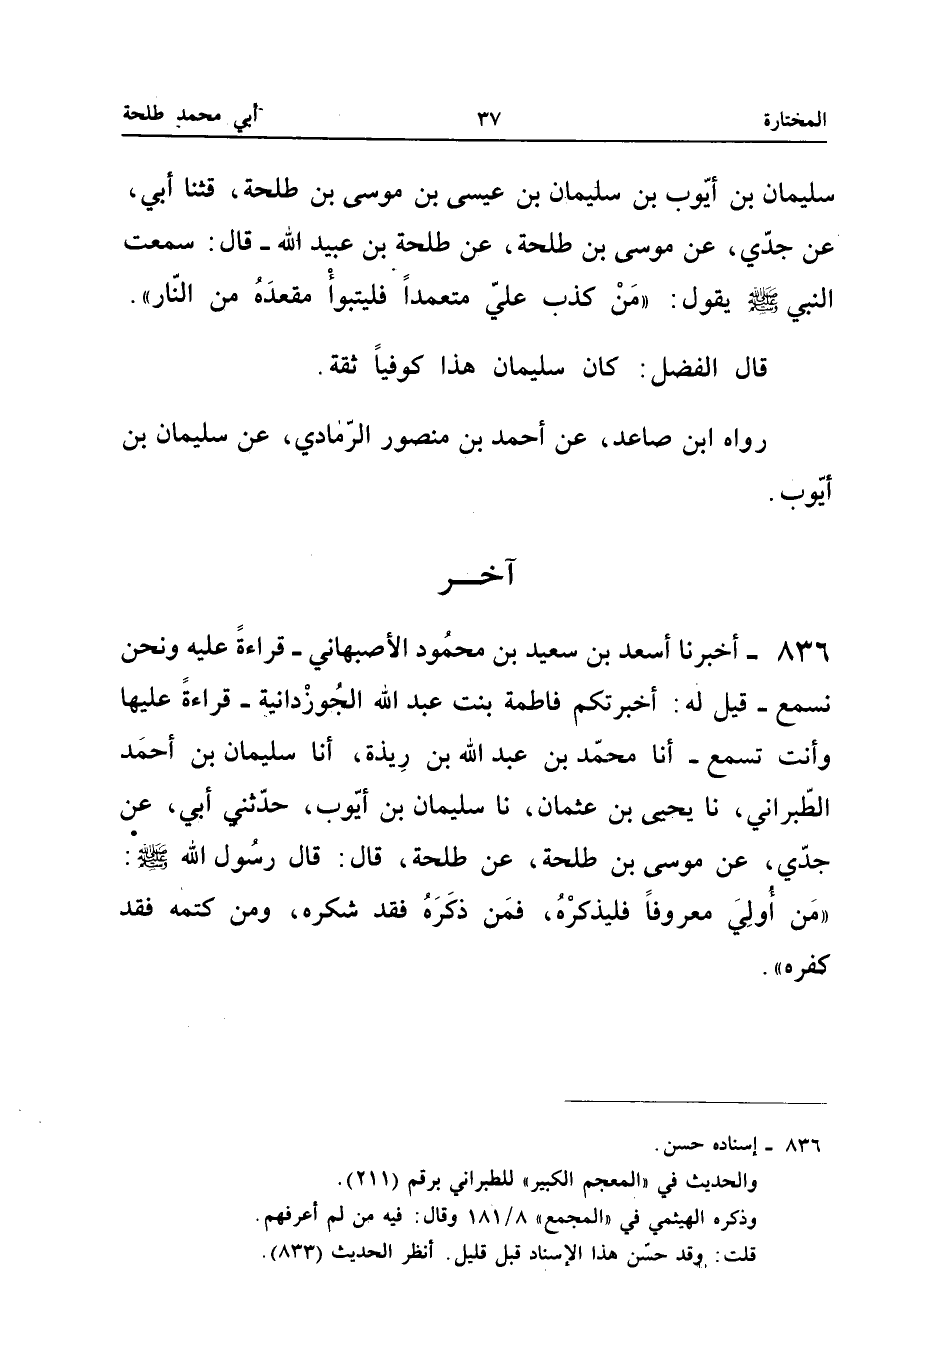 المختارة ٣٧ أبي محمد طلحة
سليمان بن أيّوب بن سليمان بن عيسى بن موسى بن طلحة، قثنا أبي،
عن جدّي، عن موسى بن طلحة، عن طلحة بن عبيد الله ـ قال: سمعت
النبي ﷺ يقول: «مَنْ كذب عليّ متعمداً فليتبوأْ مقعدَهُ من النّار».
قال الفضل: كان سليمان هذا كوفياً ثقة.
رواه ابن صاعد، عن أحمد بن منصور الرّمادي، عن سليمان بن
أيّوب.
آخـــر
٨٣٦ ـ أخبرنا أسعد بن سعيد بن محمُود الأصبهاني ـ قراءةً عليه ونحن
نسمع ـ قيل له: أخبرتكم فاطمة بنت عبد الله الجُوزْدانية ـ قراءةً عليها
وأنت تسمع ـ أنا محمّد بن عبد الله بن رِيذة، أنا سليمان بن أحمَد
الطّبراني، نا يحيى بن عثمان، نا سليمان بن أيّوب، حدّثني أبي، عن
جدّي، عن موسى بن طلحة، عن طلحة، قال: قال رسُول الله ﷺ:
«مَن أُولِيَ معروفاً فليذكرْهُ، فمَن ذكَرَهُ فقد شكره، ومن كتمه فقد
كفره».
٨٣٦ ـ إسناده حسن.
والحديث في «المعجم الكبير» للطبراني برقم (٢١١).
وذكره الهيثمي في «المجمع» ١٨١/٨ وقال: فيه من لم أعرفهم.
قلت: وقد حسّن هذا الإسناد قبل قليل. أنظر الحديث (٨٣٣).